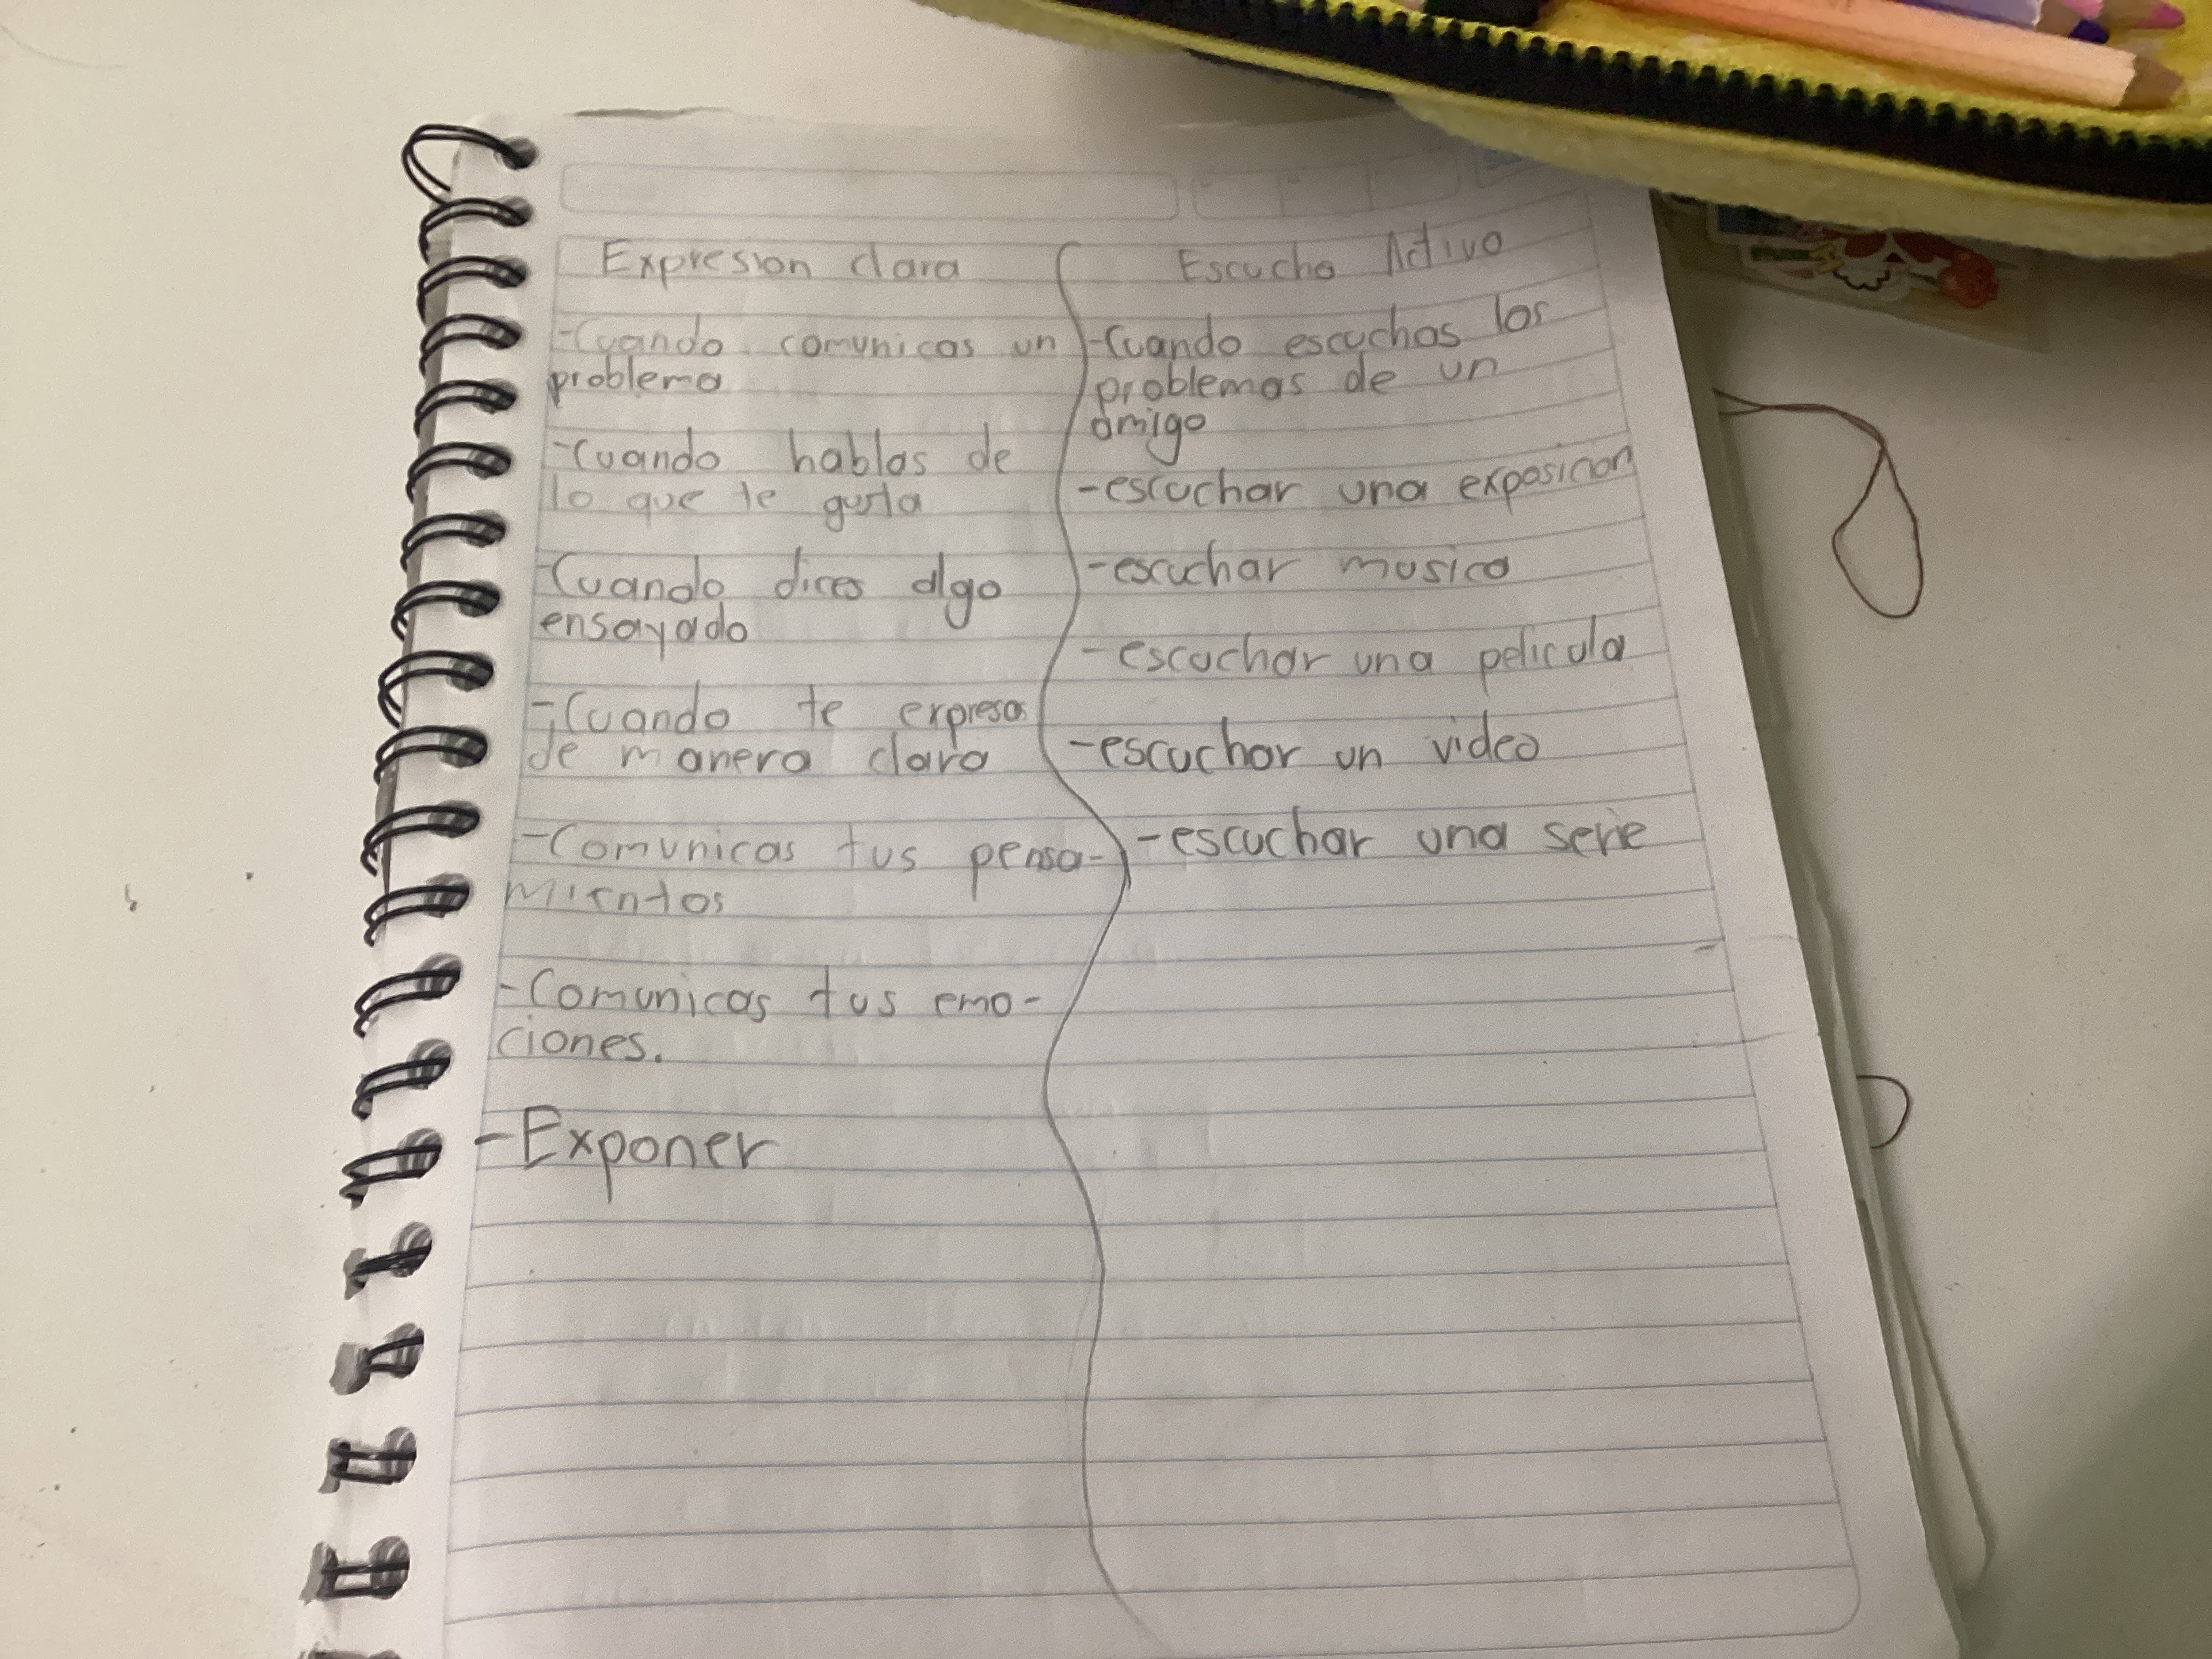 Expresion clara
-Cuando comunicas un
problema
-Cuando hablas de
lo que te gusta
-Cuando dices algo
ensayado
-Cuando te expresas
de manera clara
-Comunicas tus pensa-
mientos
-Comunicas tus emo-
ciones.
-Exponer
Escucha Activa
-Cuando escuchas los
problemas de un
amigo
-escuchar una exposicion
-escuchar musica
-escuchar una pelicula
-escuchar un video
-escuchar una serie